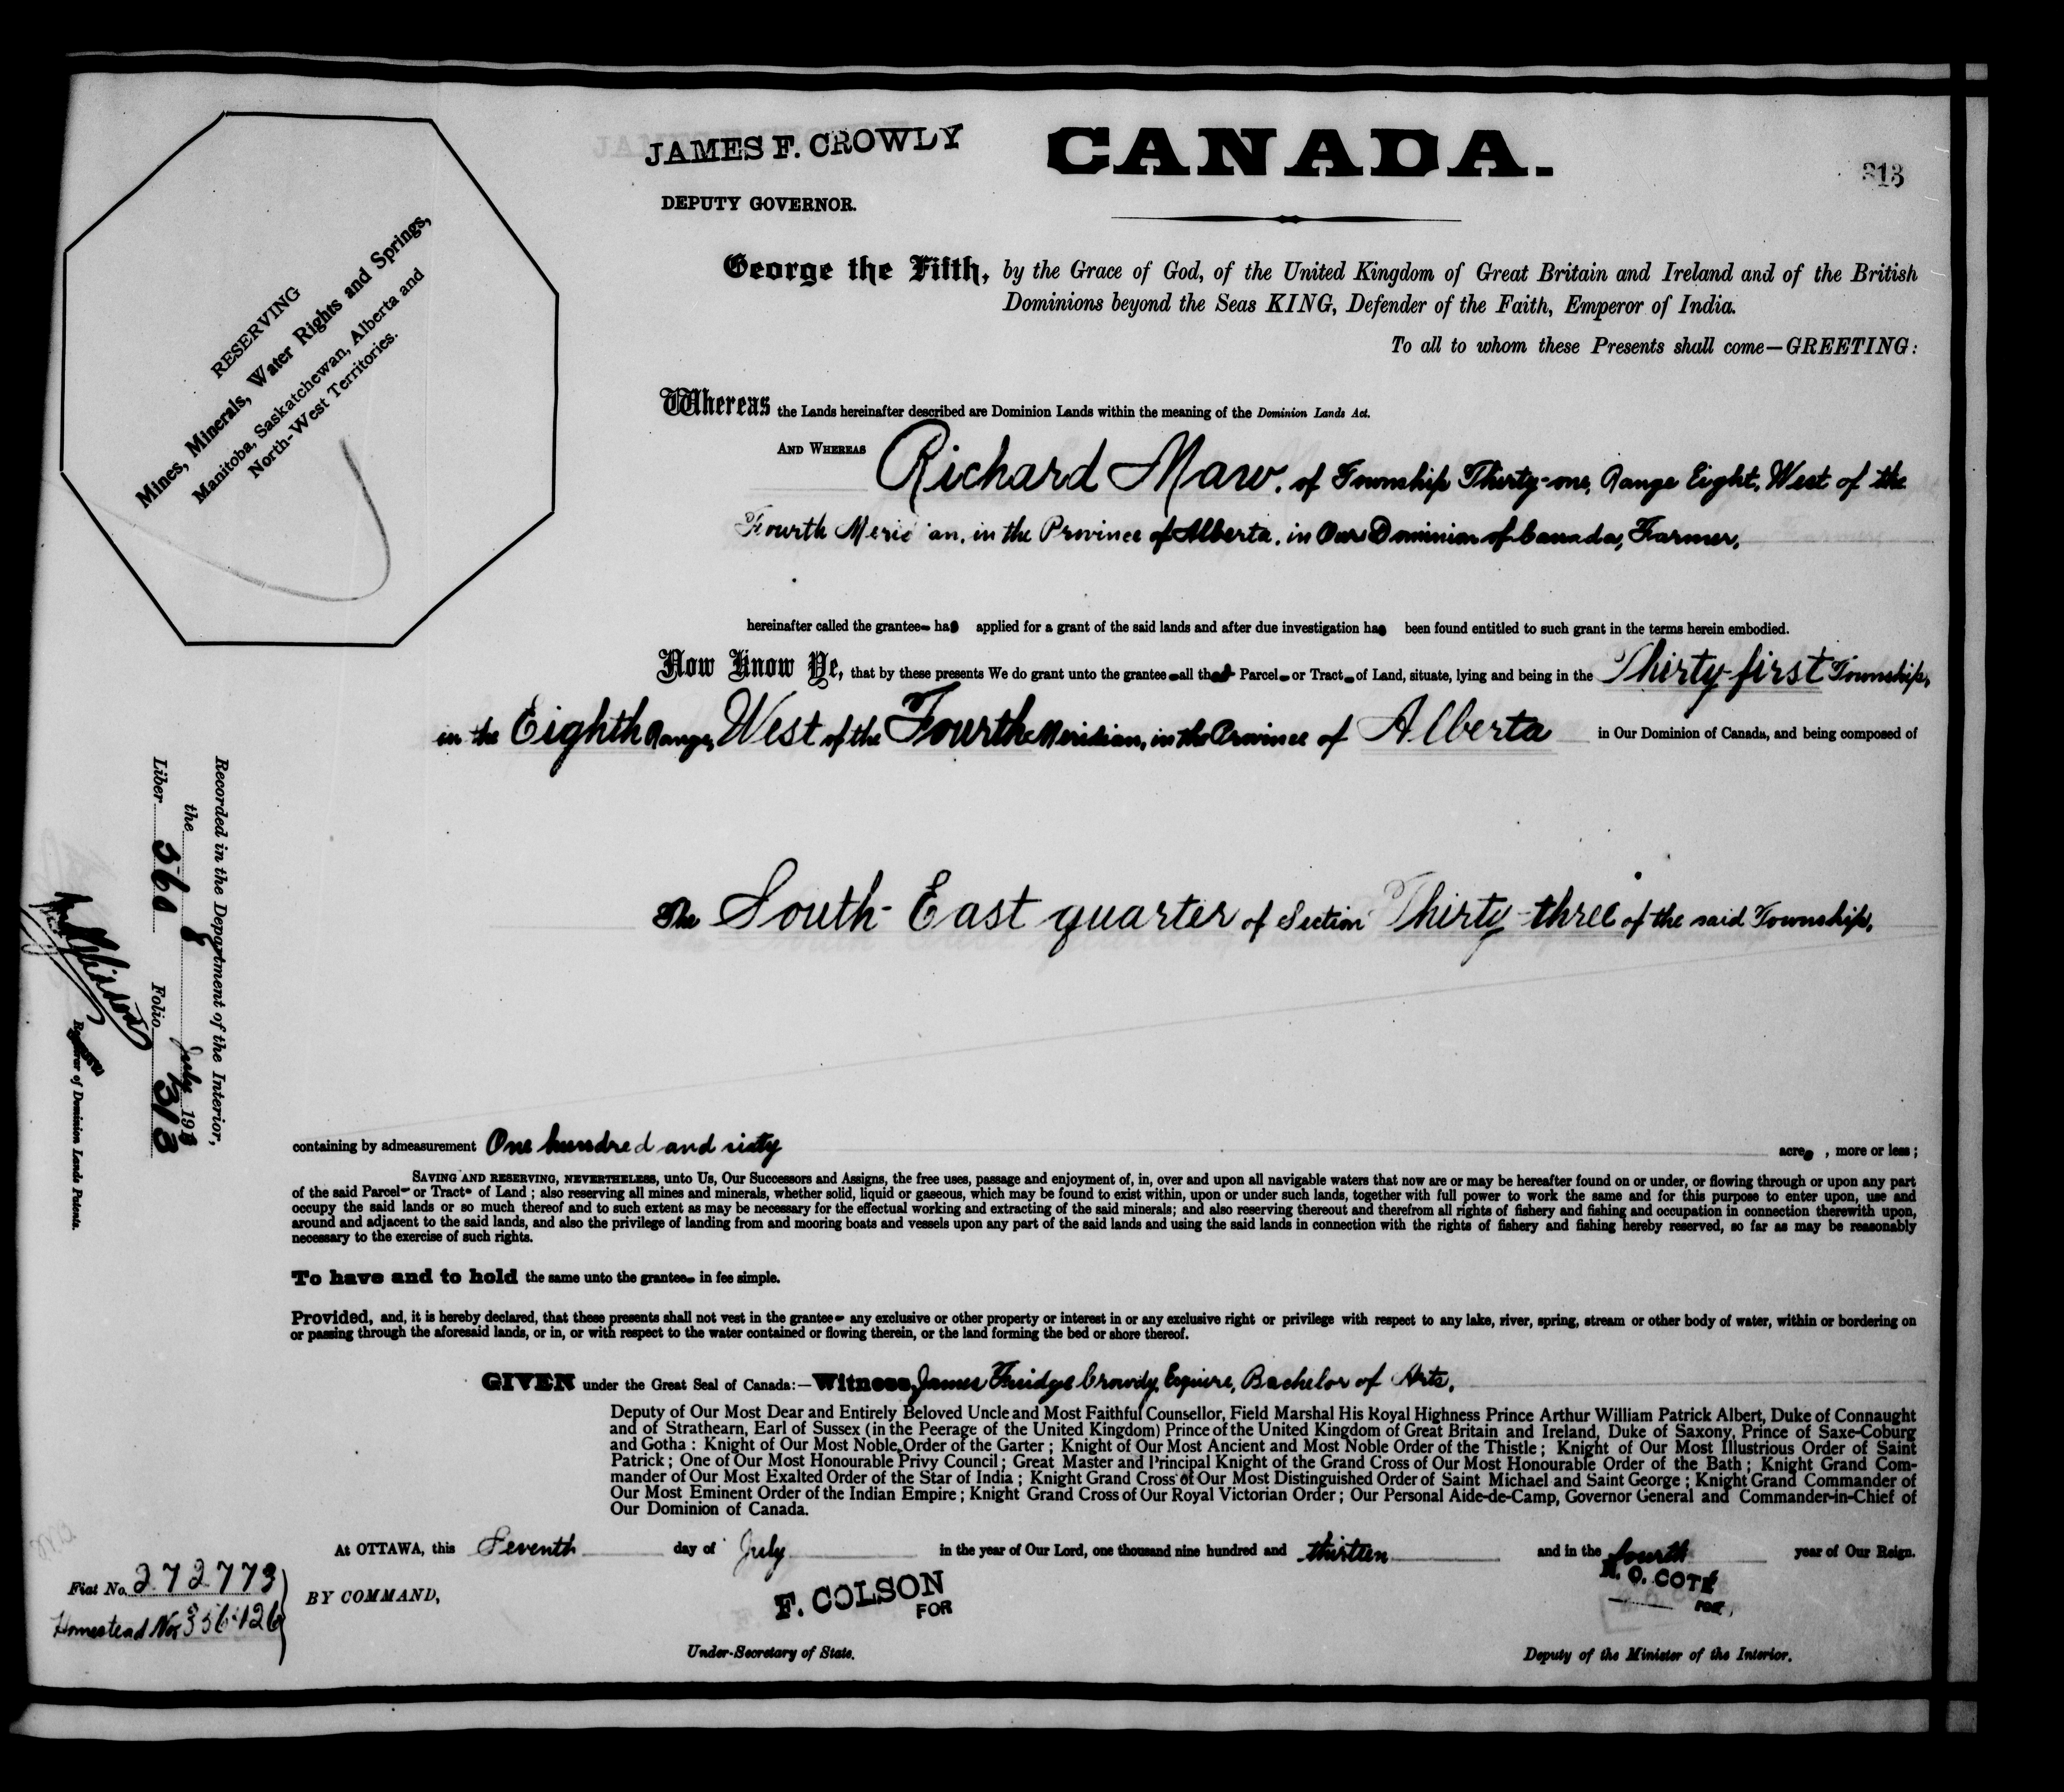 JAMES F. CROWDY
CANADA.
313
DEPUTY GOVERNOR.
RESERVING
Mines, Minerals, Water Rights and Springs,
Manitoba, Saskatchewan, Alberta and
North-West Territories.
George the Fifth, by the Grace of God, of the United Kingdom of Great Britain and Ireland and of the British
Dominions beyond the Seas KING, Defender of the Faith, Emperor of India.
To all to whom these Presents shall come—GREETING:
Whereas the Lands hereinafter described are Dominion Lands within the meaning of the Dominion Lands Act.
AND WHEREAS Richard Maw, of Township Thirty-one, Range Eight, West of the
Fourth Meridian, in the Province of Alberta, in Our Dominion of Canada, Farmer,
hereinafter called the grantee has applied for a grant of the said lands and after due investigation has been found entitled to such grant in the terms herein embodied.
Now Know Ye, that by these presents We do grant unto the grantee all that Parcel or Tract of Land, situate, lying and being in the Thirty-first Township,
in the Eighth Range, West of the Fourth Meridian, in the Province of Alberta in Our Dominion of Canada, and being composed of
The South-East quarter of Section Thirty-three of the said Township,
containing by admeasurement One hundred and sixty acres, more or less;
SAVING AND RESERVING, NEVERTHELESS, unto Us, Our Successors and Assigns, the free uses, passage and enjoyment of, in, over and upon all navigable waters that now are or may be hereafter found on or under, or flowing through or upon any part
of the said Parcel or Tract of Land; also reserving all mines and minerals, whether solid, liquid or gaseous, which may be found to exist within, upon or under such lands, together with full power to work the same and for this purpose to enter upon, use and
occupy the said lands or so much thereof and to such extent as may be necessary for the effectual working and extracting of the said minerals; and also reserving thereout and therefrom all rights of fishery and fishing and occupation in connection therewith upon,
around and adjacent to the said lands, and also the privilege of landing from and mooring boats and vessels upon any part of the said lands and using the said lands in connection with the rights of fishery and fishing hereby reserved, so far as may be reasonably
necessary to the exercise of such rights.
To have and to hold the same unto the grantee in fee simple.
Provided, and, it is hereby declared, that these presents shall not vest in the grantee any exclusive or other property or interest in or any exclusive right or privilege with respect to any lake, river, spring, stream or other body of water, within or bordering on
or passing through the aforesaid lands, or in, or with respect to the water contained or flowing therein, or the land forming the bed or shore thereof.
GIVEN under the Great Seal of Canada:—Witness, James Fruidge Crowdy, Esquire, Bachelor of Arts,
Deputy of Our Most Dear and Entirely Beloved Uncle and Most Faithful Counsellor, Field Marshal His Royal Highness Prince Arthur William Patrick Albert, Duke of Connaught
and of Strathearn, Earl of Sussex (in the Peerage of the United Kingdom) Prince of the United Kingdom of Great Britain and Ireland, Duke of Saxony, Prince of Saxe-Coburg
and Gotha: Knight of Our Most Noble Order of the Garter; Knight of Our Most Ancient and Most Noble Order of the Thistle; Knight of Our Most Illustrious Order of Saint
Patrick; One of Our Most Honourable Privy Council; Great Master and Principal Knight of the Grand Cross of Our Most Honourable Order of the Bath; Knight Grand Com-
mander of Our Most Exalted Order of the Star of India; Knight Grand Cross of Our Most Distinguished Order of Saint Michael and Saint George; Knight Grand Commander of
Our Most Eminent Order of the Indian Empire; Knight Grand Cross of Our Royal Victorian Order; Our Personal Aide-de-Camp, Governor General and Commander-in-Chief of
Our Dominion of Canada.
At OTTAWA, this Seventh day of July in the year of Our Lord, one thousand nine hundred and thirteen and in the fourth year of Our Reign.
Fiat No. 272773
Homestead No. 356126
BY COMMAND,
F. COLSON
FOR
Under-Secretary of State.
N. O. COTÉ
FOR,
Deputy of the Minister of the Interior.
Recorded in the Department of the Interior,
the 8 July 1913
Liber 360 Folio 313
Registrar of Dominion Lands Patents.